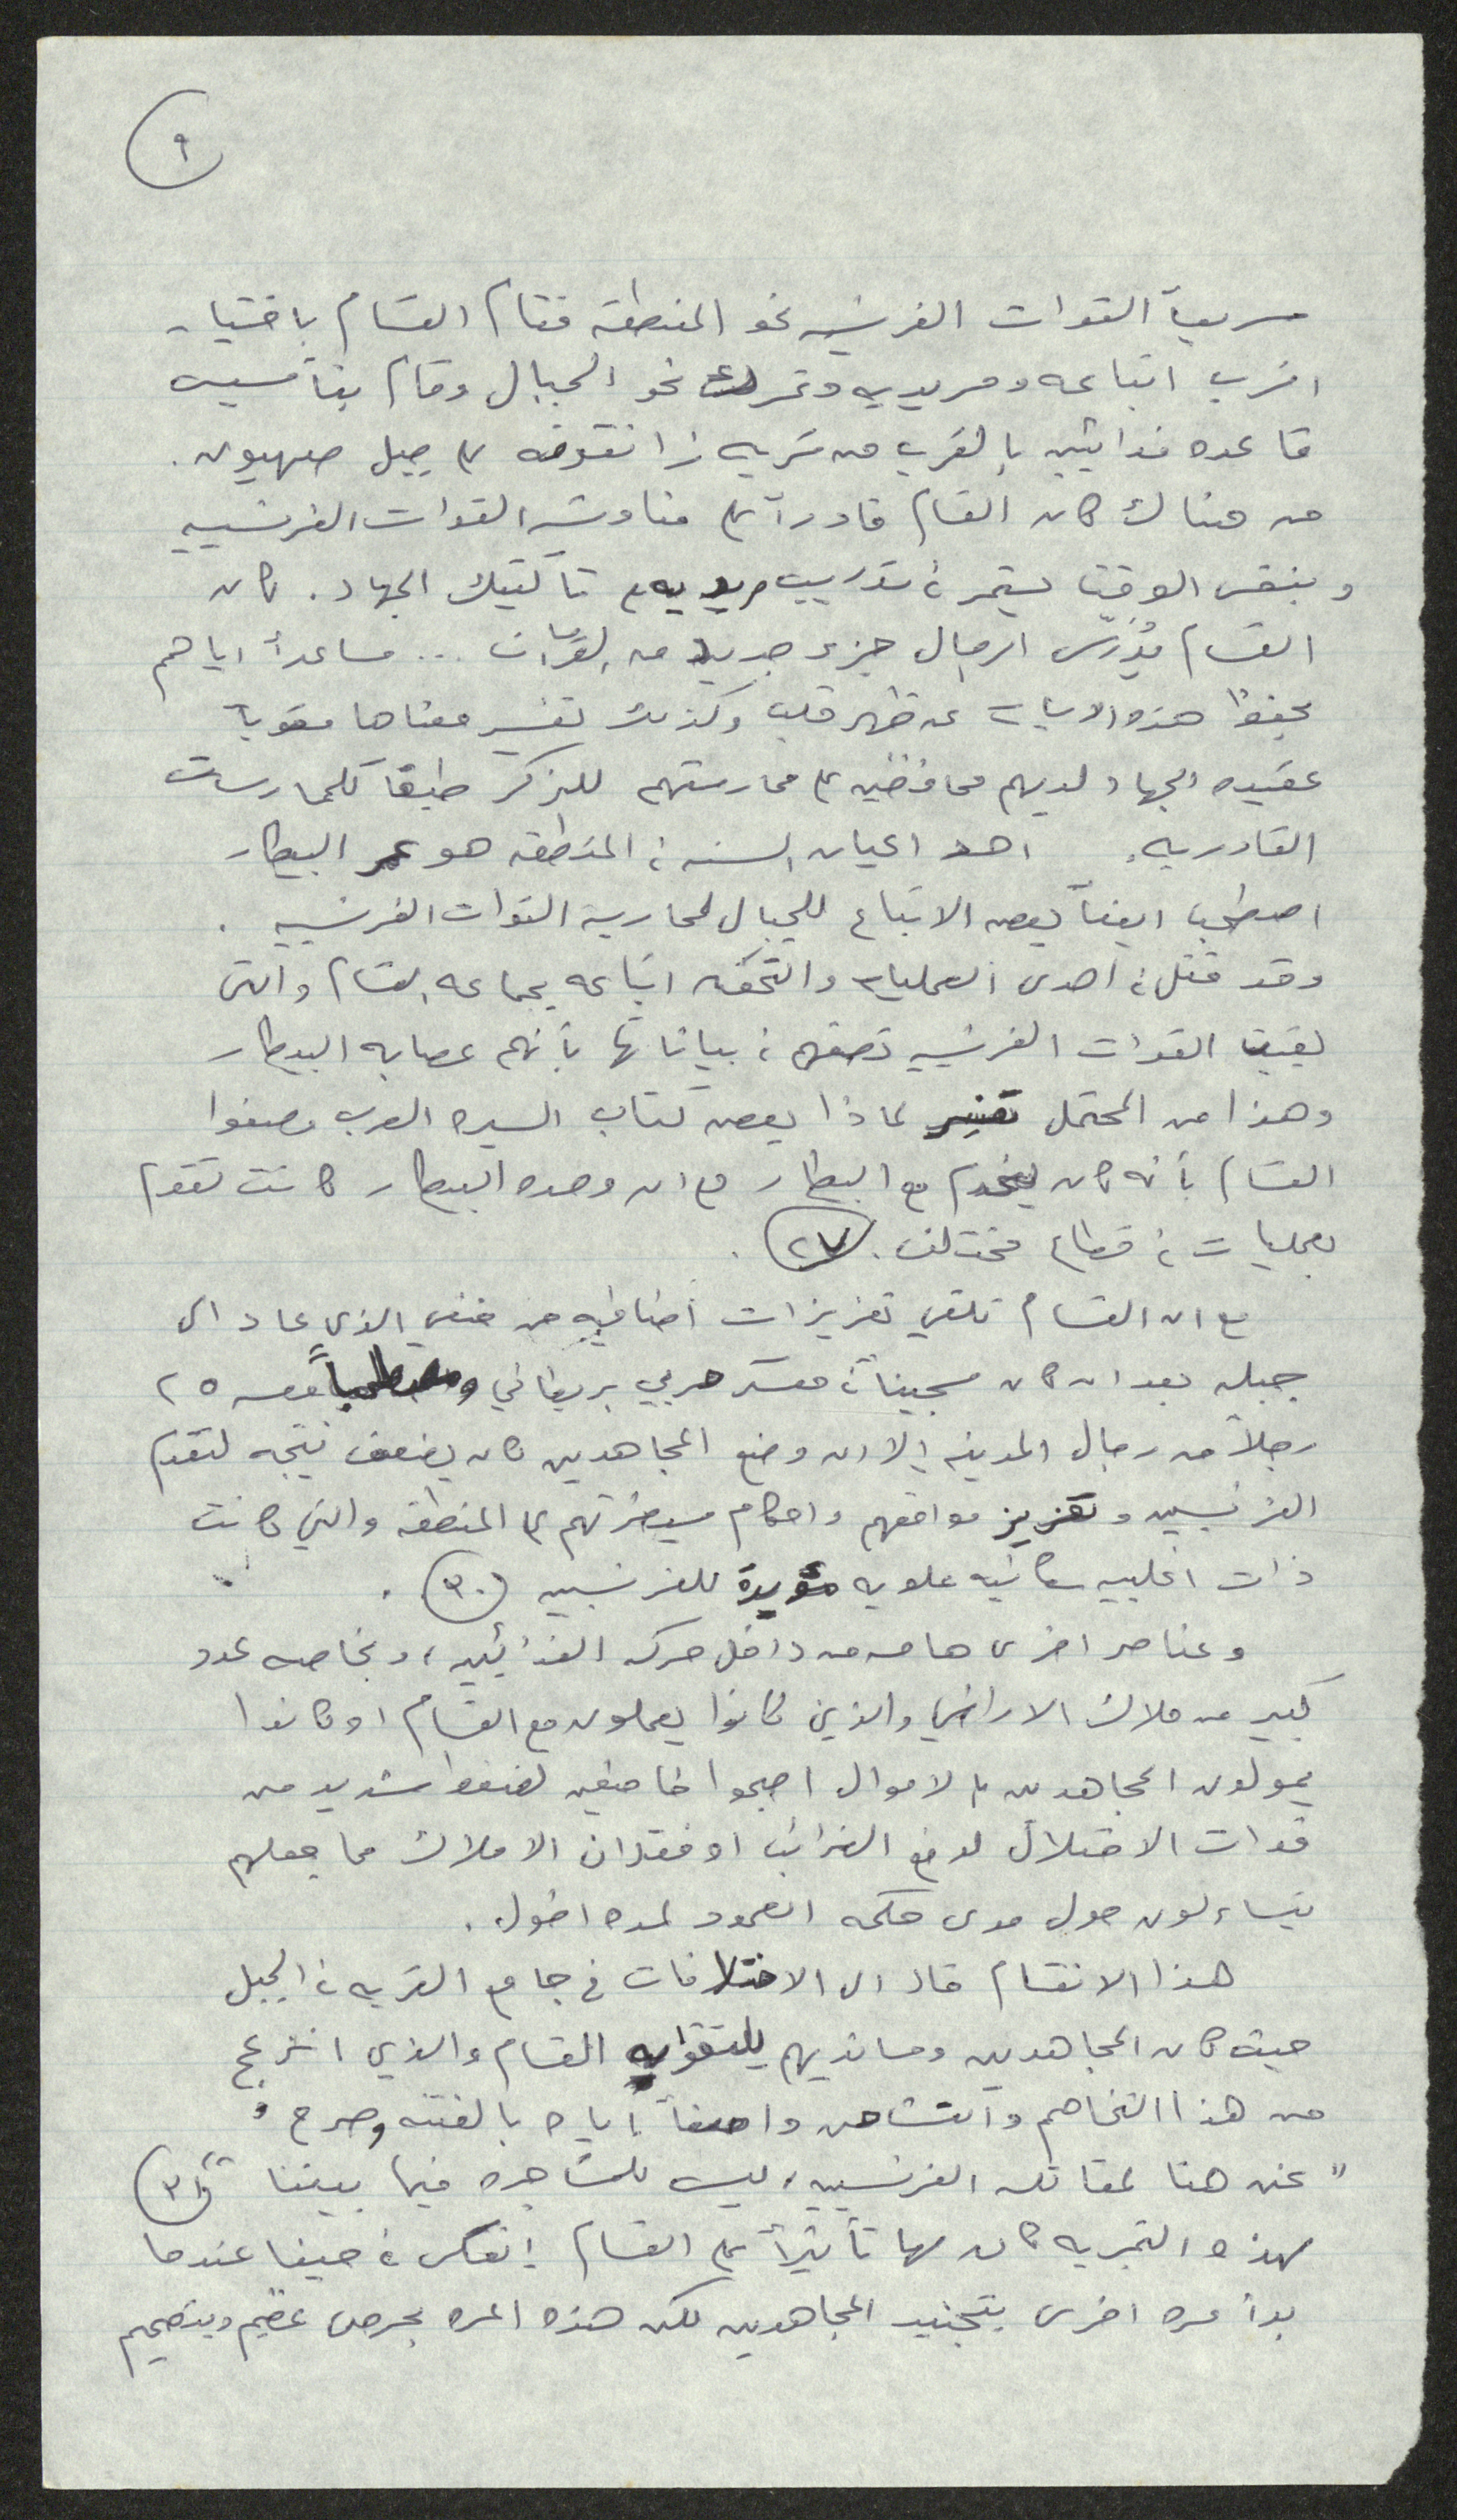 ٩
سريعاً القوات الفرنسيه نحو المنطقه فقام القسام باختيار
اقرب اتباعه ومريديه وتحرك نحو الجبال وقام بتأسيس
قاعده فدائيين بالقرب من قريه زانقوفه على جبل صهيون.
من هناك كان القسام قادراً على مناوشه القوات الفرنسيه
وبنفس الوقت يستمر في تدريب مريديه على تاكتيك الجهاد. كان
القسام يُدَرّس الرجال جزء جديد من القرآن ... مساعداً اياهم
بحفظ هذه الايات عن ظهر قلب وكذلك تفسير معناها مقوياً
عقيده الجهاد لديهم محافظين على ممارستهم للذكر طبقاً للممارسات
القادريه. احد اعيان السنه في المنطقه هو عمر البيطار
اصطحب ايضاً بعض الاتباع للجبال لمحاربة القوات الفرنسيه.
وقد قتل في احدى العمليات والتحق اتباعه بجماعه القسام والتى
بقيت القوات الفرنسيه تصفهم في بياناتها بأنهم عصابه البيطار
وهذا من المحتمل تفسير لماذا بعض كتاب السيره العرب وصفوا
القسام بأنه كان يخدم مع البيطار مع ان وحده البيطار كانت تقوم
بعمليات في قطاع مختلف. (٢٧).
مع ان القسام تلقي تعزيزات اضافيه من حنفي الذي عاد الى
جبله بعد ان كان سجيناً في معسكر حربي بريطاني ومصطحباً معه ٢٥
رجلاً من رجال المدينه إلا ان وضع المجاهدين كان يضعف نتيجه لتقدم
الفرنسيين وتعزيز مواقعهم واحكام سيطرتهم على المنطقه والتي كانت
ذات اغلبيه سكانيه علويه مؤيدة للفرنسيين (٣٠).
وعناصر اخرى هامه من داخل حركه الفدائيين، وبخاصه عدد
كبير من ملاك الاراضي والذين كانوا يعملون مع القسام او كانوا
يمولون المجاهدين بالاموال اصبحوا خاضعين لضغط شديد من
قوات الاحتلال لدفع الضرائب او فقدان الاملاك مما جعلهم
يتساءلون حول مدى حكمه الصمود لمده اطول.
هذا الانقسام قاد الى الاختلافات في جامع القريه في الجبل
حيث كان المجاهدين ومساندينهم يلتقوا به القسام والذي انزعج
من هذا التخاصم والتشاحن واصفاً اياه بالفتنه وصرح،
"نحن هنا لمقاتله الفرنسيين، ليس للمشاجره فيما بيننا" (٣١)
لهذه التجربه كان لها تأثيراً على القسام إنعكس في حيفا عندما
بدأ مره اخرى بتجنيد المجاهدين لكن هذه المره بحرص عظيم وبتصميم